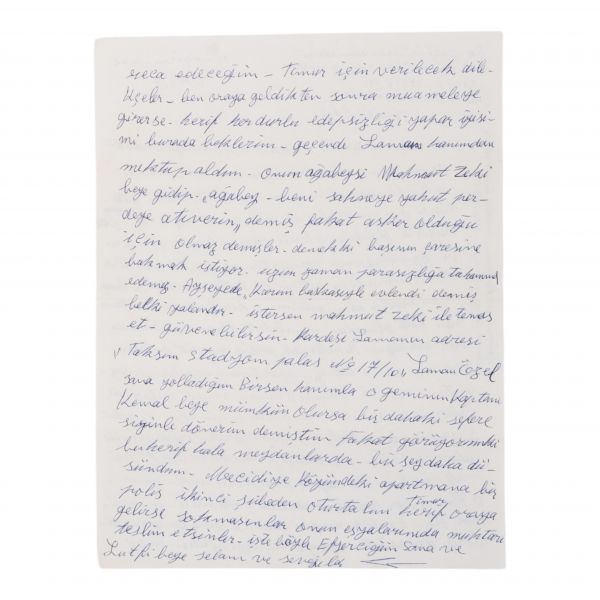 rica edeceğim - Timur için verilecek dile-
kçeler - ben oraya geldikten sonra muameleye
girerse - herif her durlu edepsizliği yapar iyisi-
mi burada beklerim - geçende Laman hanımdan
mektup aldım - onun ağabeysi Mahmut Zeki
beye gidip - „ağabey - beni sahneye yahut per-
deye atıverin„ demiş fakat asker olduğu
için olmaz demişler - demekki başının çaresine
bakmak istiyor. uzun zaman parasızlığa tahammül
edemez - Ayşeyede „ karım başkasıyle evlendi demiş
belki yalandır - istersen mahmut Zeki ile temas
et - güvenebilirsin - Kardeşi Lamanın adresi
„ Taksim Stadyom palas № 17/10 „ Laman Özel
sana yolladığım Birsen hanımla o geminin Kaptanı
Kemal beye mümkün olursa bir dahaki sefere
sizinle dönerim demiştim Fakat görüyorumki
bu herif hala meydanlarda - bir şey daha dü-
şündüm - Mecidiye Köyündeki apartmana bir
polis ikinci şubeden oturtalım Timur herif oraya
gelirse sokmasınlar onun eşyalarınıda muhtara
teslim etsinler - işte böyle Efserciğim sana ve
Lutfi beye selam ve sevgiler